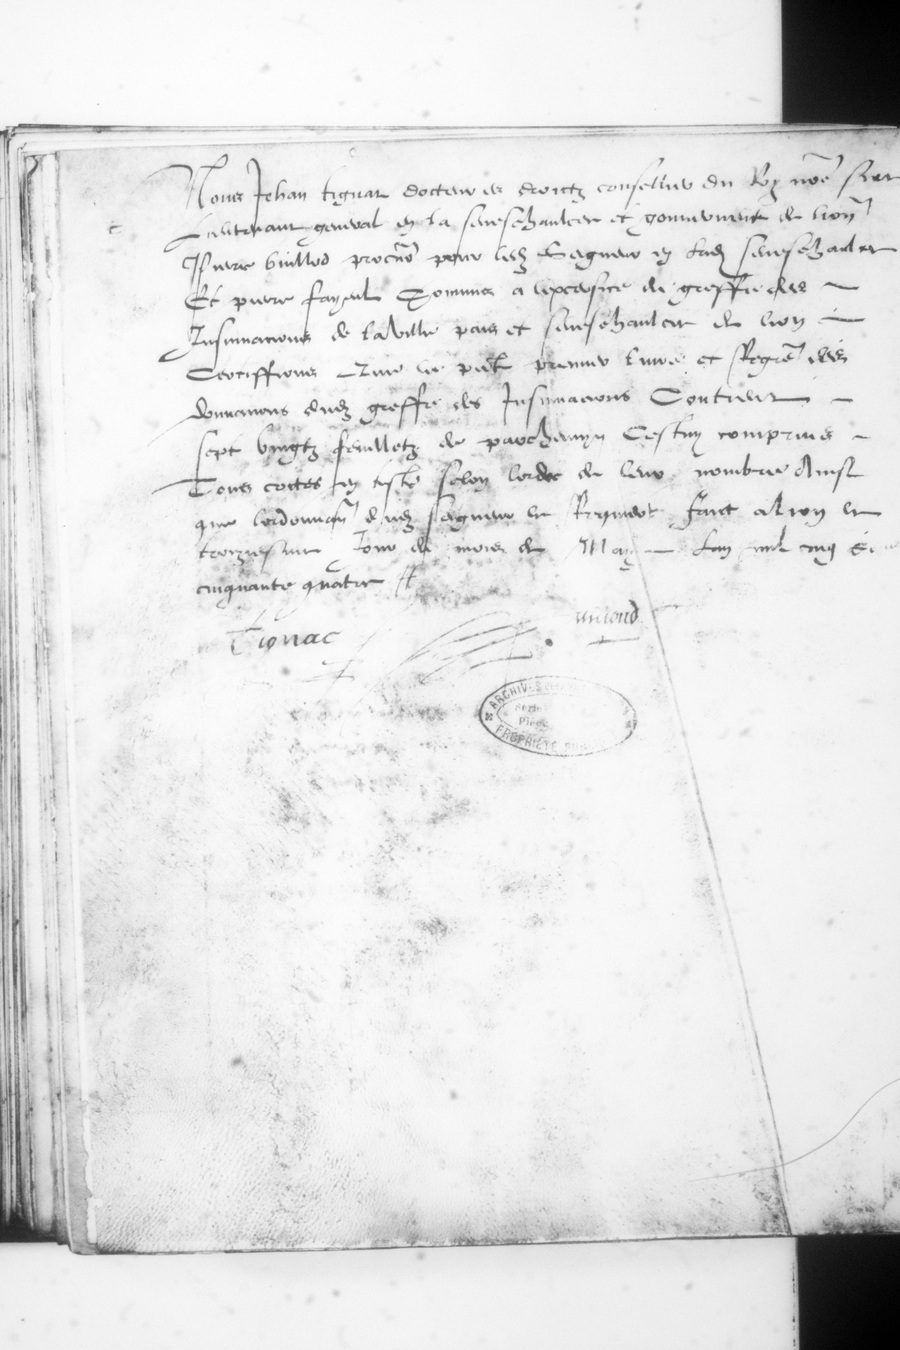 Nous Jehan tignat docteur es droictz conseillier du Roy nre Sire
Lieutenant general en la seneschaulcee et gouvernemt de lion
Pierre bullod procur pour ledz Seigneur en ladz seneschaulcee
Et pierre fayeul Commis a lexcersice du greffe des
Insinuacions de la ville pais et seneschaulcee de lion
Certiffions Que le pnt premier livre et Regre des
donnacions dudz greffe des Insinuacions Contient
sept vingtz feulletz de parchemyn Cestuy comprins
Tous cottes en teste selon lordre de leur nombre Ainsi
que lordonnan dudz seigneur le Requiert faict a Lion le
treziesme Jour du mois de May Lan mil cinq
cinquante quatre
Tignac
ARCHIVES
PROPRIÉTÉ PUB